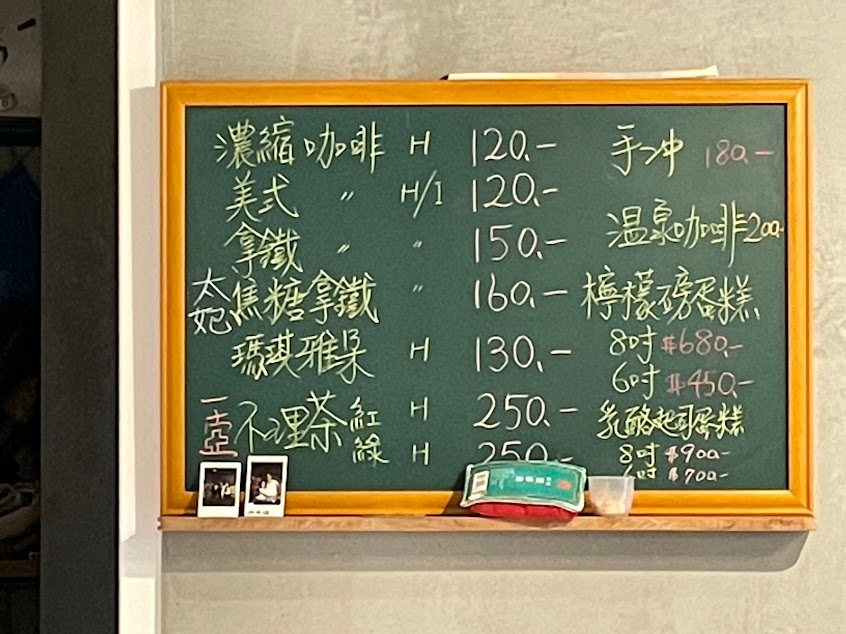 濃縮咖啡 H 120.-
美式 〃 H/I 120.-
拿鐵 〃 〃 150.-
太妃焦糖拿鐵 〃 160.-
瑪琪雅朵 H 130.-
一壺 不理茶 紅 H 250.-
綠 H 250.-
手冲 180.-
温泉咖啡 200.-
檸檬磅蛋糕
8吋 $680.-
6吋 $450.-
乳酪起司蛋糕
8吋 $900.-
6吋 $700.-